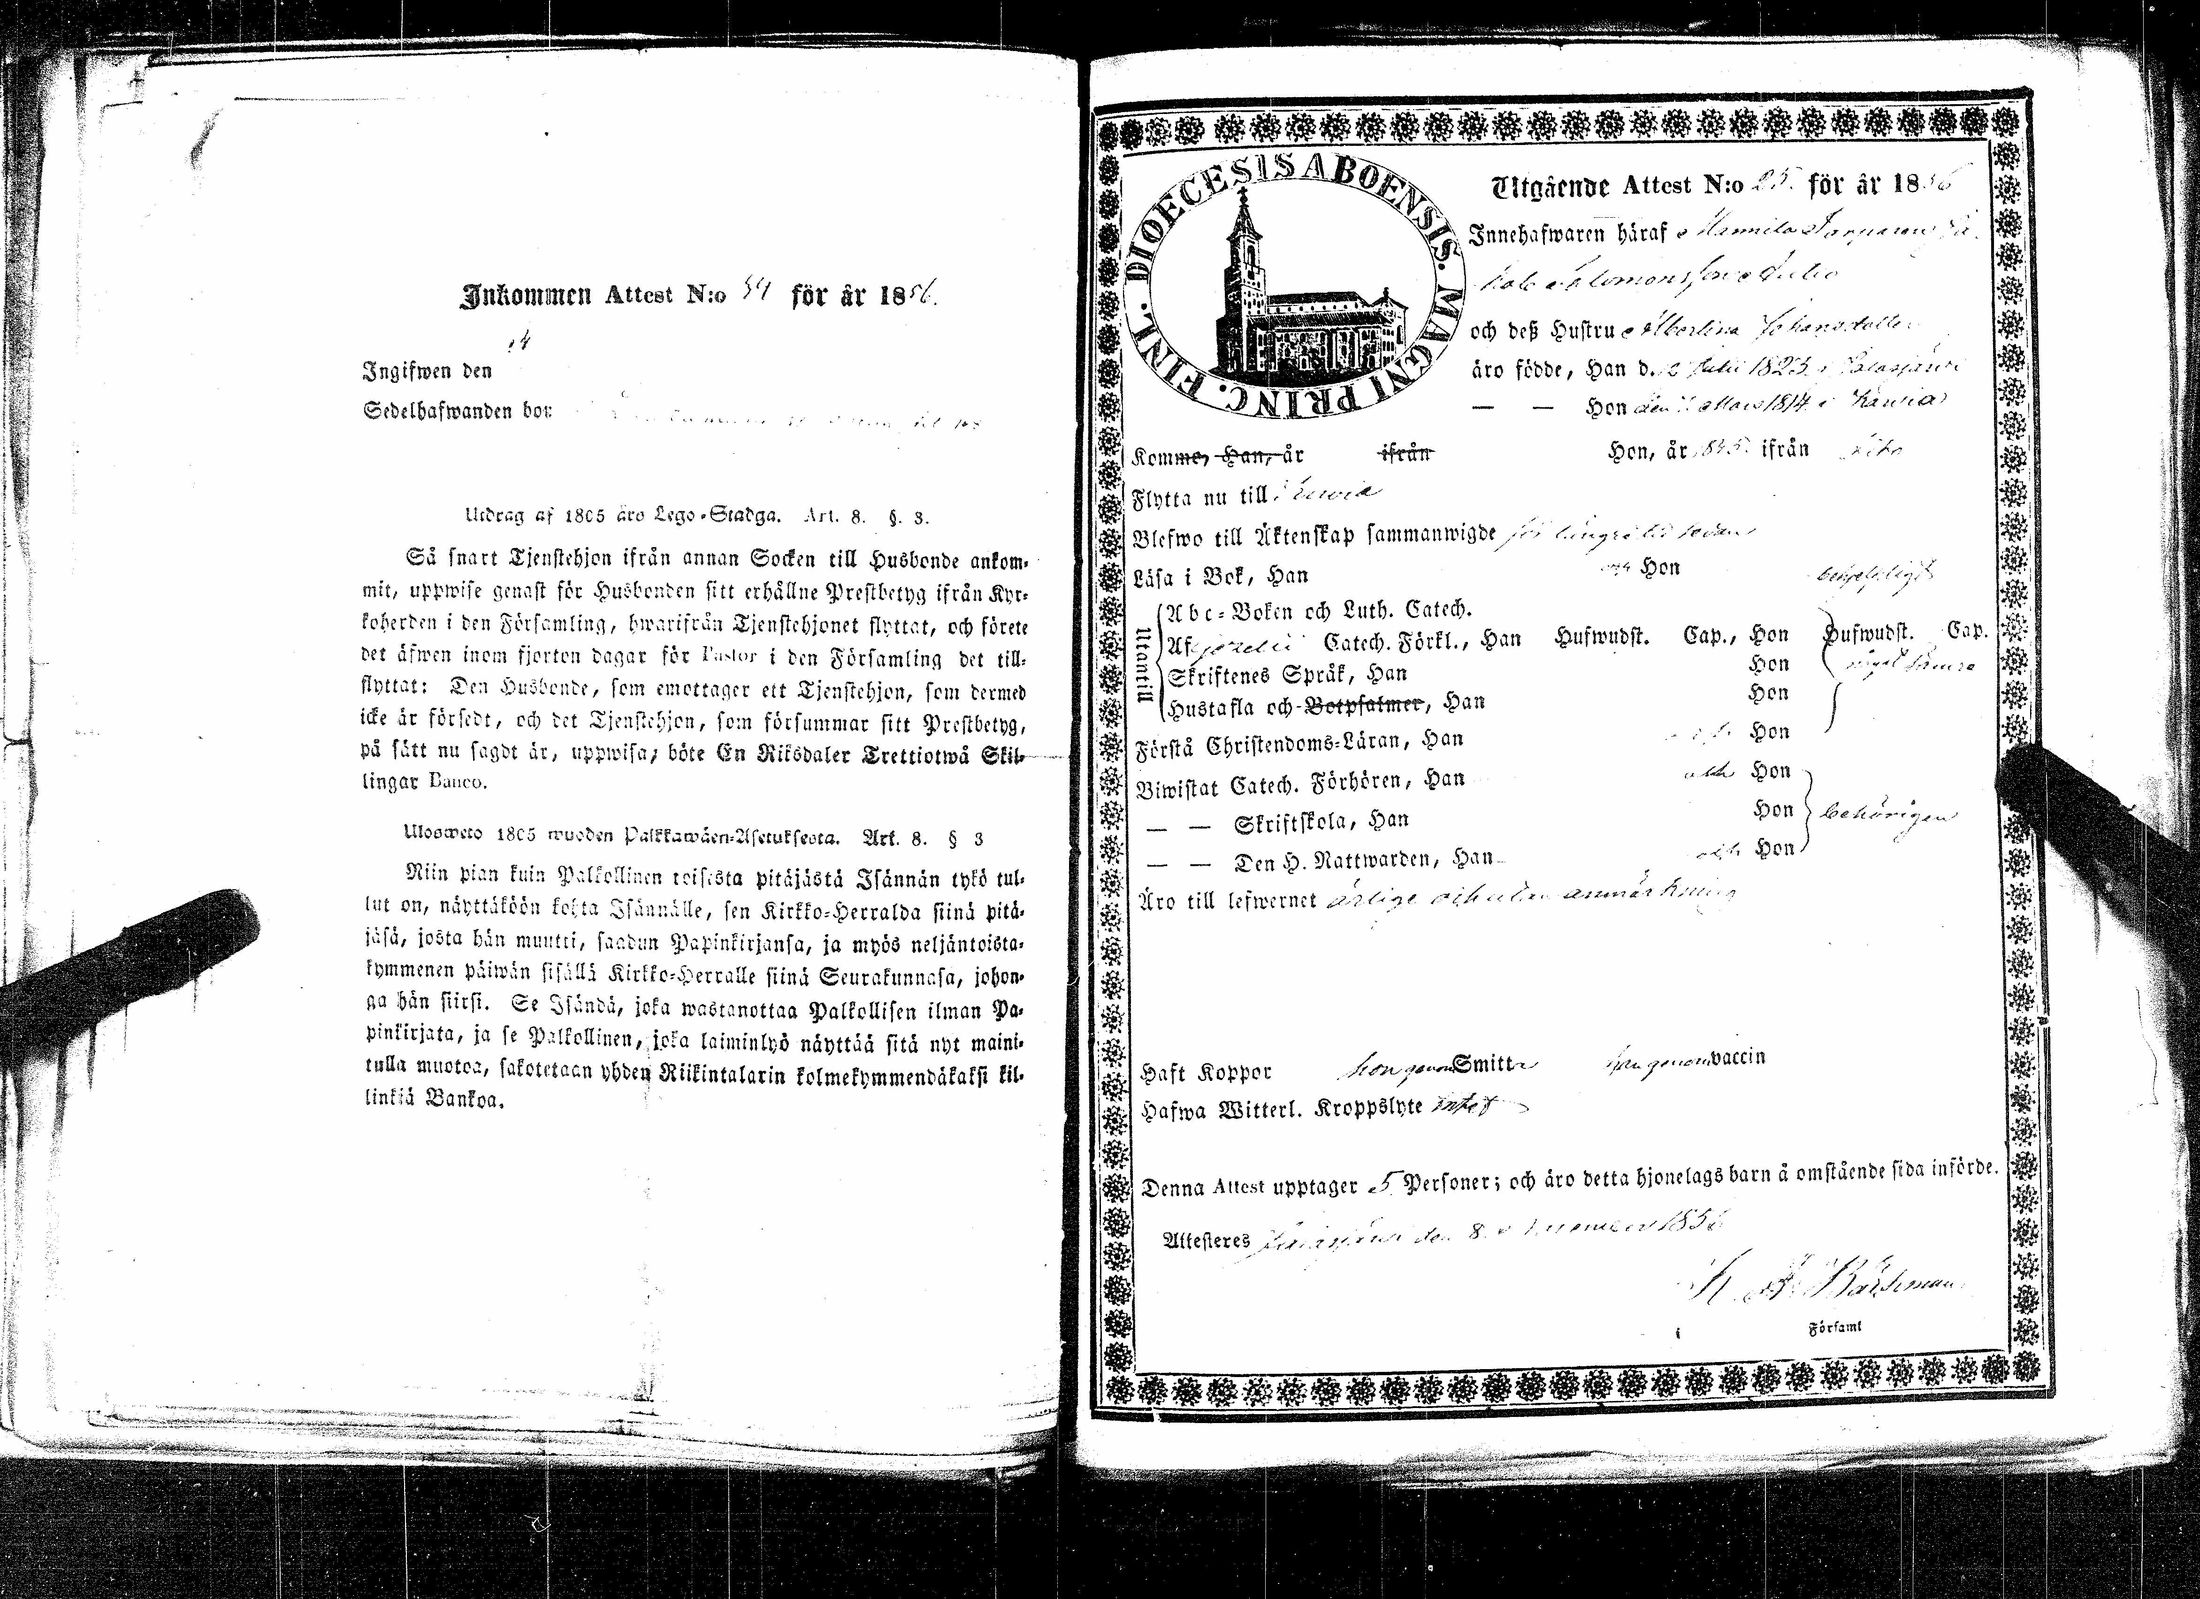 Inkommen Attest N:o 54 för år 1856.
Ingifwen den
Sedelhafwanden bor
Utdrag af 1805 års Lego-Stadga. Art. 8. §. 3.
Så snart Tjenstehjon ifrån annan Socken till Husbonde ankom-
mit, uppwise genast för Husbonden sitt erhållne Prestbetyg ifrån Kyr-
koherden i den Församling, hwarifrån Tjenstehjonet flyttat, och förete
det äfwen inom fjorton dagar för Pastor i den Församling det till-
flyttat: Den Husbonde, som emottager ett Tjenstehjon, som dermed
icke är försedt, och det Tjenstehjon, som försummar sitt Prestbetyg,
på sätt nu sagdt är, uppwisa, böte En Riksdaler Trettiotwå Skil-
lingar Banco.
Uloswelo 1805 wuoden Palkkawäen-Asetuksesta. Art. 8. § 3
Niin pian kuin Palkollinen toisesta pitäjästä Isännän tykö tul-
lut on, näyttäköön kohta Isännälle, sen Kirkko-Herralda siinä pitä-
jäsä, josta hän muutti, saadun Papinkirjansa, ja myös neljäntoista-
kymmenen päiwän sisällä Kirkko-Herralle siinä Seurakunnasa, johon-
ga hän siirsi. Se Isändä, joka wastanottaa Palkollisen ilman Pa-
pinkirjata, ja se Palkollinen, joka laiminlyö näyttää sitä nyt maini-
tulla muotoa, sakotetaan yhden Riikintalarin kolmekymmendäkaksi kil-
linkiä Bankoa.
DIOECESIS ABOENSIS. MAGNI PRINC. FINL.
Utgående Attest N:o 25. för år 1856
Innehafwaren häraf
Salomonsson
och deß Hustru Albertina Johansdotter
äro födde, Han d. 2 Julii 1823 i Jalasjärvi
— — Hon den Mars 1814 i Karvia
Komme, Han, år ifrån Hon, år 1845 ifrån
Flytta nu till Karvia
Blefwo till Äktenskap sammanwigde för längre tid sedan
Läsa i Bok, Han och Hon
Utantill
Abc-Boken och Luth. Catech.
Af Catech. Förkl., Han Hufwudst. Cap., Hon Hufwudst. Cap.
Skriftenes Språk, Han Hon något sämre
Hustafla och Botpsalmer, Han Hon
Förstå Christendoms-Läran, Han och Hon
Biwistat Catech. Förhören, Han och Hon
— — Skriftskola, Han Hon behörigen
— — Den H. Nattwarden, Han och Hon
Äro till lefwernet ärlige och utan anmärkning
Haft Koppor hon genom Smitta han genom vaccin
Hafwa Witterl. Kroppslyte intet
Denna Attest upptager 5 Personer; och äro detta hjonelags barn å omstående sida införde.
Attesteres den 8 1856
Församl